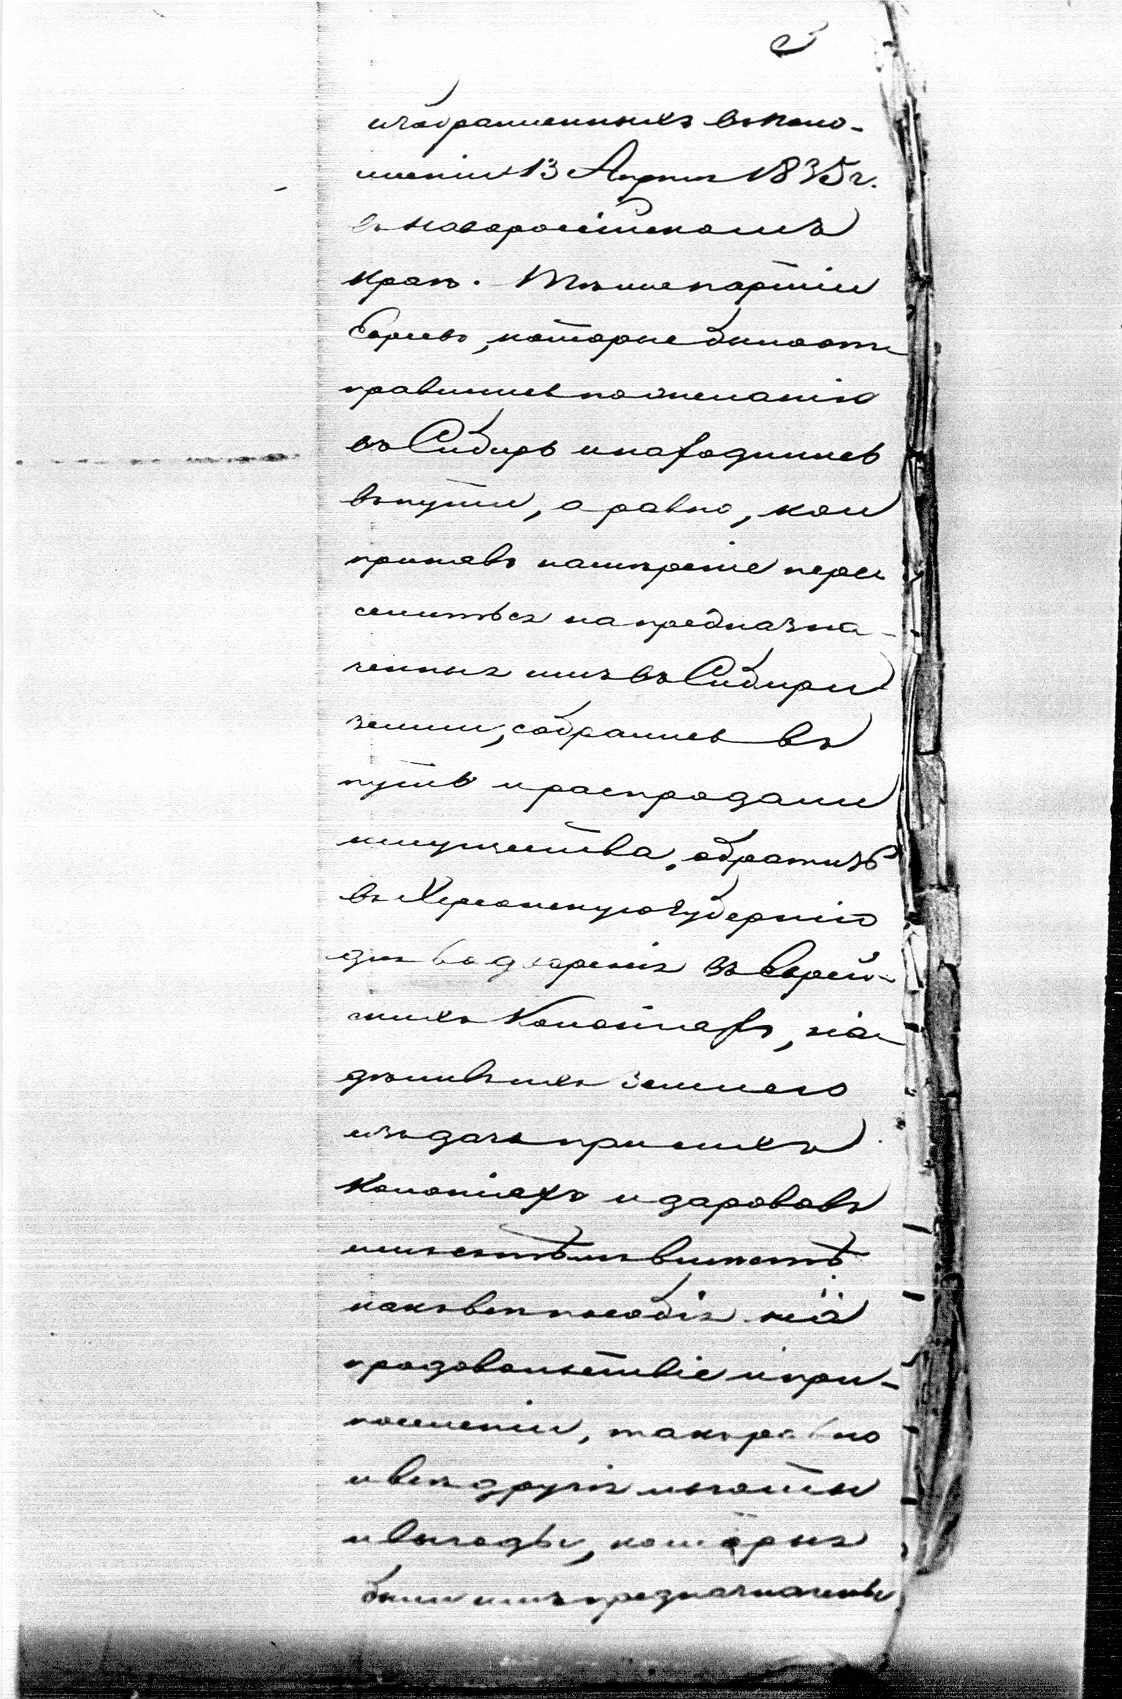 изображенныхъ въ Поло-
женіи 13 Апреля 1835 г.
въ Новороссійскомъ
краѣ. Тѣ же партіи
Евреевъ, которые были от
правлены по желанію
въ Сибирь и находились
въ пути, а равно, кои
принявъ намѣреніе пере
селиться на предназна-
ченныя имъ въ Сибири
земли, собрались въ
путь и распродали
имущества, обратить
въ Херсонскую Губернію
для водворенія въ Еврей-
скихъ Колоніяхъ, на
дѣливъ ихъ землею
изъ дачъ при сихъ
Колоніяхъ и даровавъ
имъ вмѣстѣ
какъ всѣ пособія на
продовольствіе и при
поселеніи, такъ равно
и всѣ другія льготы
и выгоды, которыя
были имъ предназначены